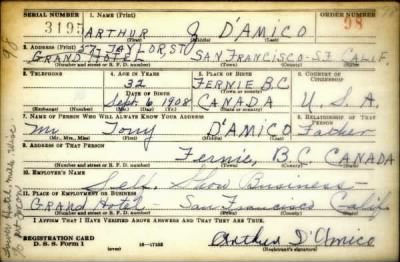 SERIAL NUMBER 1. NAME (Print) ORDER NUMBER
3195 ARTHUR J D'AMICO 98
(First) (Middle) (Last)
2. ADDRESS (Print) 57 TAYLOR ST
GRAND HOTEL SAN FRANCISCO - S.F. CALIF.
(Number and street or R. F. D. number) (Town) (County) (State)
3. TELEPHONE 4. AGE IN YEARS 5. PLACE OF BIRTH 6. COUNTRY OF CITIZENSHIP
32 FERNIE B.C
DATE OF BIRTH (Town or county)
Sept. 6 1908 CANADA U.S.A.
(Exchange) (Number) (Mo.) (Day) (Yr.) (State or country)
7. NAME OF PERSON WHO WILL ALWAYS KNOW YOUR ADDRESS 8. RELATIONSHIP OF THAT PERSON
Mr. Tony D'AMICO Father
(Mr., Mrs., Miss) (First) (Middle) (Last)
9. ADDRESS OF THAT PERSON
Fernie, B.C. CANADA
(Number and street or R. F. D. number) (Town) (County) (State)
10. EMPLOYER'S NAME
Self. Show Business -
11. PLACE OF EMPLOYMENT OR BUSINESS
GRAND Hotel - San Francisco Calif.
(Number and street or R. F. D. number) (Town) (County) (State)
I AFFIRM THAT I HAVE VERIFIED ABOVE ANSWERS AND THAT THEY ARE TRUE.
REGISTRATION CARD
D. S. S. Form 1 16-17105 Arthur D'Amico